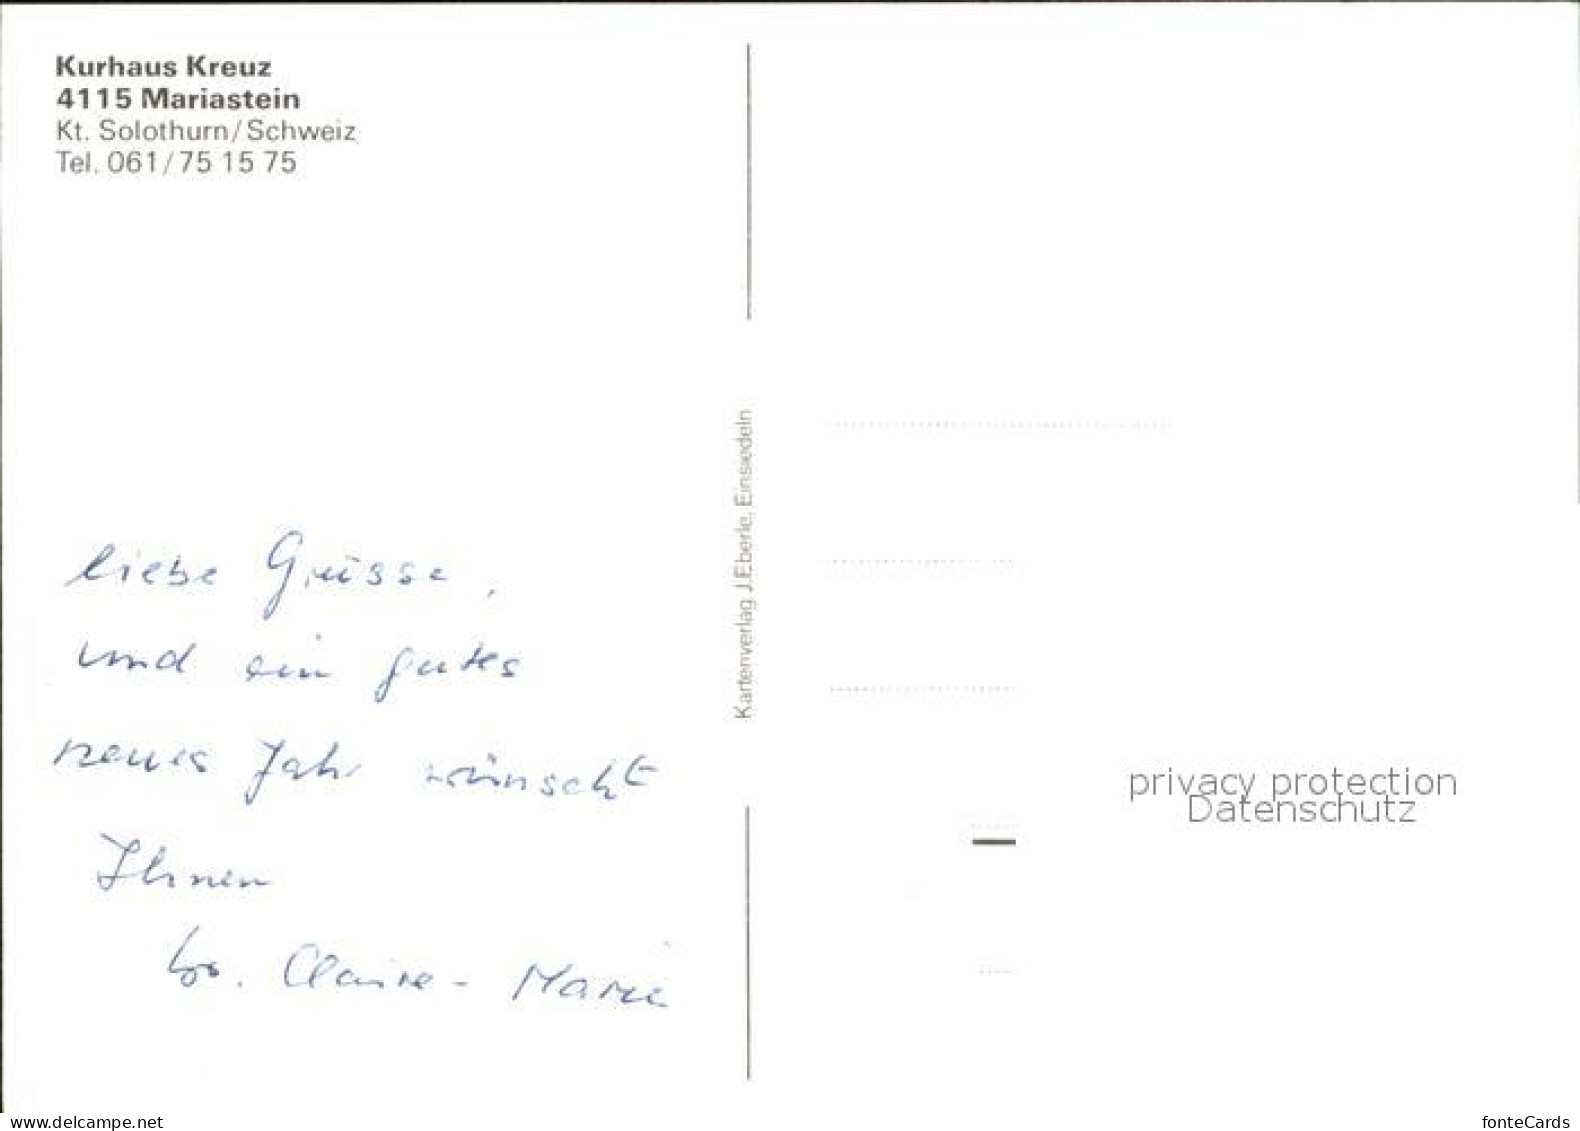 Kurhaus Kreuz
4115 Mariastein
Kt. Solothurn/Schweiz
Tel. 061/75 15 75
Kartenverlag J.Eberle, Einsiedeln
liebe Grüsse,
und ein gutes
neues Jahr wünscht
Ihnen
Sr. Claire-Marie
privacy protection
Datenschutz
www.delcampe.net
fonteCards